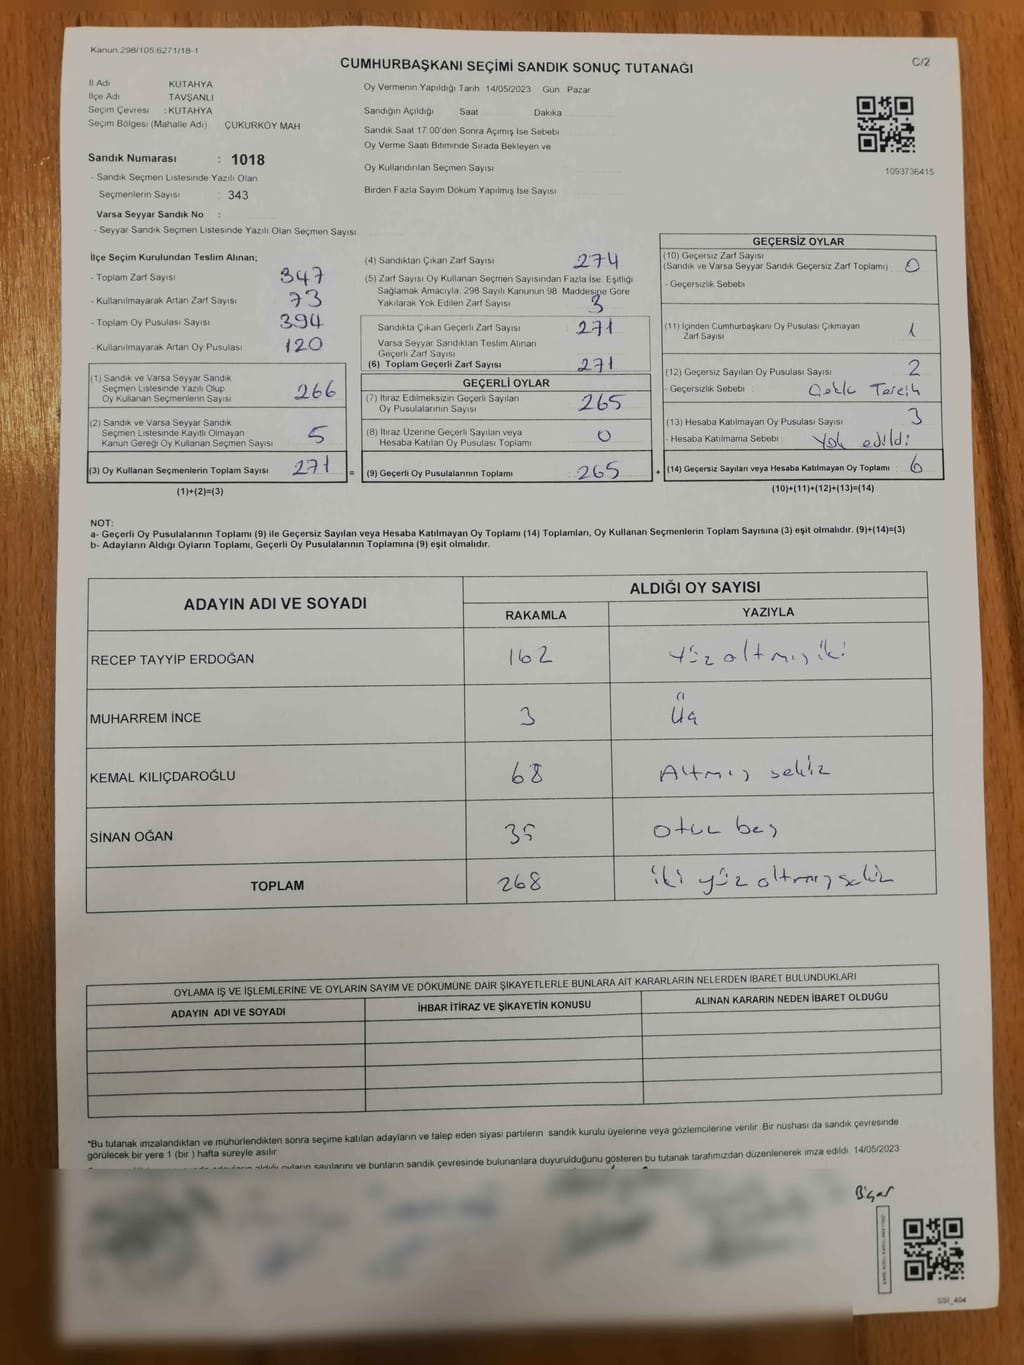 Kanun:298/105.6271/18-1
C/2
CUMHURBAŞKANI SEÇİMİ SANDIK SONUÇ TUTANAĞI
İl Adı KUTAHYA
İlçe Adı TAVŞANLI
Seçim Çevresi : KUTAHYA
Seçim Bölgesi (Mahalle Adı) ÇUKURKÖY MAH
Sandık Numarası : 1018
- Sandık Seçmen Listesinde Yazılı Olan
Seçmenlerin Sayısı : 343
Varsa Seyyar Sandık No :
- Seyyar Sandık Seçmen Listesinde Yazılı Olan Seçmen Sayısı
Oy Vermenin Yapıldığı Tarih 14/05/2023 Gün Pazar
Sandığın Açıldığı Saat Dakika
Sandık Saat 17.00'den Sonra Açımış İse Sebebi
Oy Verme Saati Bitiminde Sırada Bekleyen ve
Oy Kullandırılan Seçmen Sayısı
Birden Fazla Sayım Döküm Yapılmış İse Sayısı
1093736415
İlçe Seçim Kurulundan Teslim Alınan;
- Toplam Zarf Sayısı 347
- Kullanılmayarak Artan Zarf Sayısı 73
- Toplam Oy Pusulası Sayısı 394
- Kullanılmayarak Artan Oy Pusulası 120
(1) Sandık ve Varsa Seyyar Sandık
Seçmen Listesinde Yazılı Olup
Oy Kullanan Seçmenlerin Sayısı 266
(2) Sandık ve Varsa Seyyar Sandık
Seçmen Listesinde Kayıtlı Olmayan
Kanun Gereği Oy Kullanan Seçmen Sayısı 5
(3) Oy Kullanan Seçmenlerin Toplam Sayısı 271 =
(1)+(2)=(3)
(4) Sandıktan Çıkan Zarf Sayısı 274
(5) Zarf Sayısı Oy Kullanan Seçmen Sayısından Fazla İse, Eşitliği
Sağlamak Amacıyla, 298 Sayılı Kanunun 98. Maddesine Göre
Yakılarak Yok Edilen Zarf Sayısı 3
Sandıkta Çıkan Geçerli Zarf Sayısı 271
Varsa Seyyar Sandıktan Teslim Alınan
Geçerli Zarf Sayısı
(6) Toplam Geçerli Zarf Sayısı 271
GEÇERLİ OYLAR
(7) İtiraz Edilmeksizin Geçerli Sayılan
Oy Pusulalarının Sayısı 265
(8) İtiraz Üzerine Geçerli Sayılan veya
Hesaba Katılan Oy Pusulası Toplamı 0
(9) Geçerli Oy Pusulalarının Toplamı 265 +
GEÇERSİZ OYLAR
(10) Geçersiz Zarf Sayısı
(Sandık ve Varsa Seyyar Sandık Geçersiz Zarf Toplamı) 0
- Geçersizlik Sebebi
(11) İçinden Cumhurbaşkanı Oy Pusulası Çıkmayan
Zarf Sayısı 1
(12) Geçersiz Sayılan Oy Pusulası Sayısı 2
- Geçersizlik Sebebi : Çoklu Tercih
(13) Hesaba Katılmayan Oy Pusulası Sayısı 3
- Hesaba Katılmama Sebebi Yok edildi
(14) Geçersiz Sayılan veya Hesaba Katılmayan Oy Toplamı 6
(10)+(11)+(12)+(13)=(14)
NOT:
a- Geçerli Oy Pusulalarının Toplamı (9) ile Geçersiz Sayılan veya Hesaba Katılmayan Oy Toplamı (14) Toplamları, Oy Kullanan Seçmenlerin Toplam Sayısına (3) eşit olmalıdır. (9)+(14)=(3)
b- Adayların Aldığı Oyların Toplamı, Geçerli Oy Pusulalarının Toplamına (9) eşit olmalıdır.
ADAYIN ADI VE SOYADI
ALDIĞI OY SAYISI
RAKAMLA YAZIYLA
RECEP TAYYİP ERDOĞAN 162 Yüz altmış iki
MUHARREM İNCE 3 Üç
KEMAL KILIÇDAROĞLU 68 Altmış sekiz
SİNAN OĞAN 35 Otuz beş
TOPLAM 268 iki yüz altmış sekiz
OYLAMA İŞ VE İŞLEMLERİNE VE OYLARIN SAYIM VE DÖKÜMÜNE DAİR ŞİKAYETLERLE BUNLARA AİT KARARLARIN NELERDEN İBARET BULUNDUKLARI
ADAYIN ADI VE SOYADI İHBAR İTİRAZ VE ŞİKAYETİN KONUSU ALINAN KARARIN NEDEN İBARET OLDUĞU
*Bu tutanak imzalandıktan ve mühürlendikten sonra seçime katılan adayların ve talep eden siyasi partilerin sandık kurulu üyelerine veya gözlemcilerine verilir. Bir nüshası da sandık çevresinde
görülecek bir yere 1 (bir ) hafta süreyle asılır.
aldığı oyların sayılarını ve bunların sandık çevresinde bulunanlara duyurulduğunu gösteren bu tutanak tarafımızdan düzenlenerek imza edildi. 14/05/2023
SSI_404